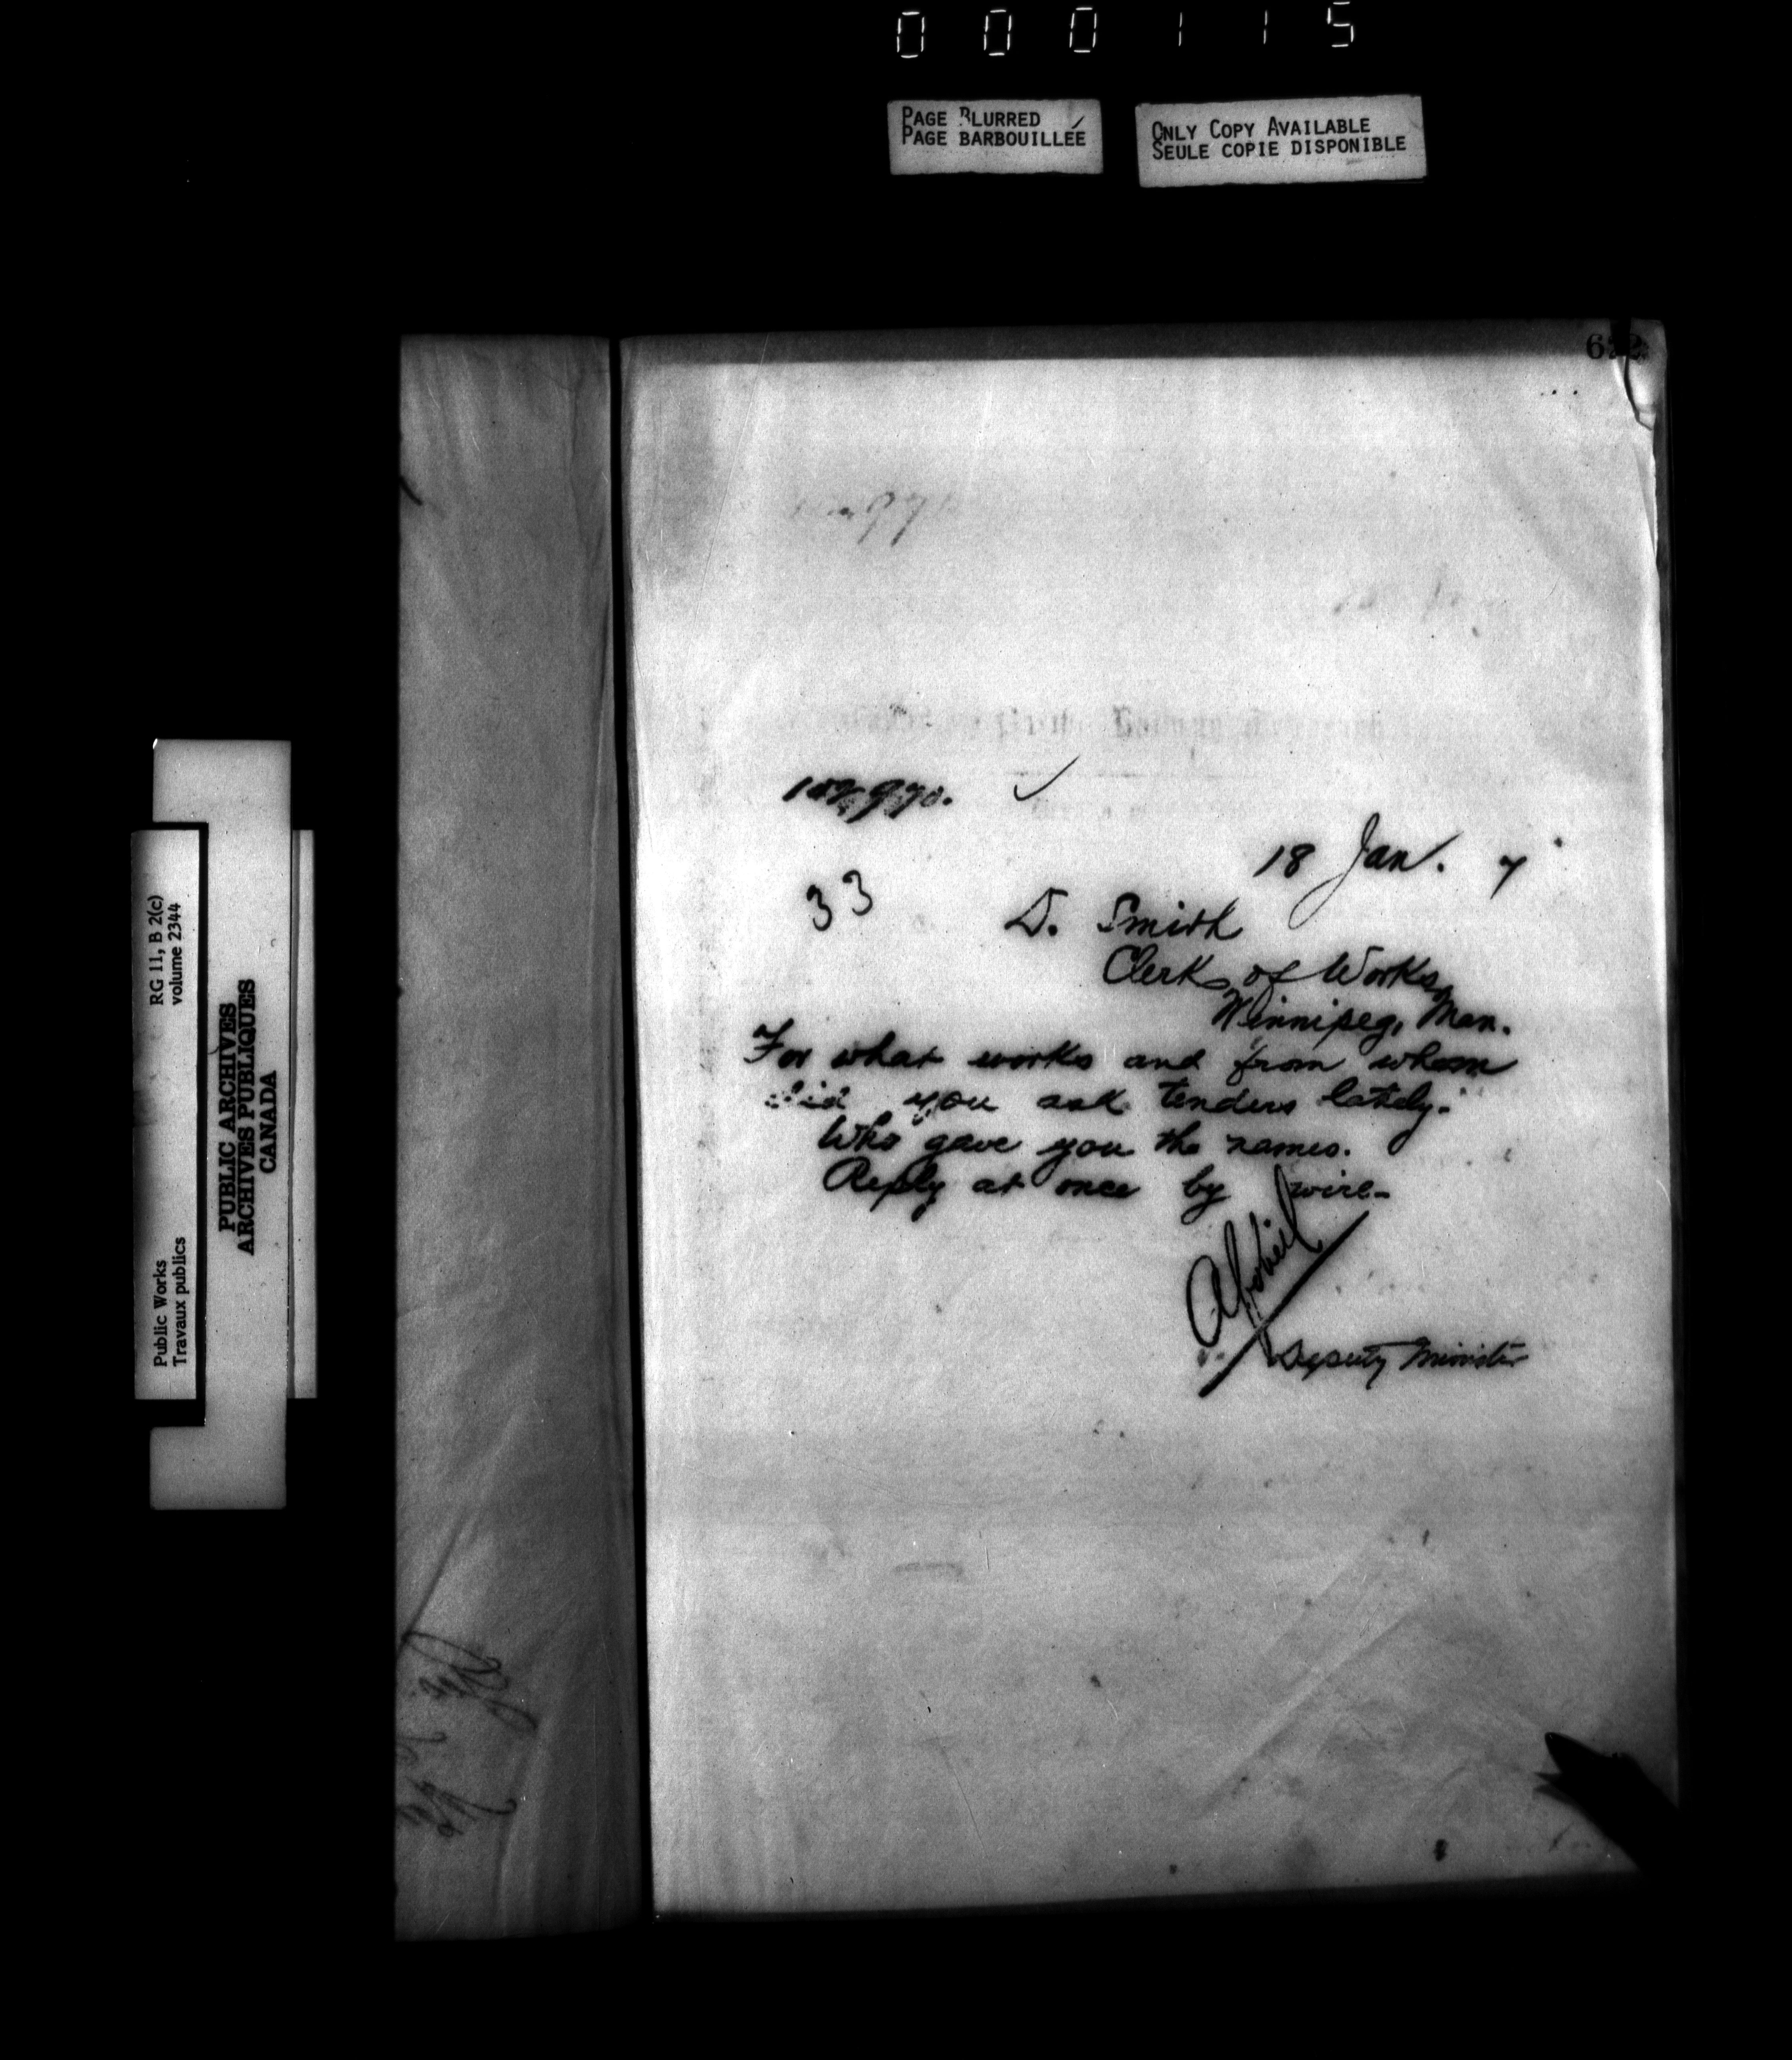 000115
PAGE BLURRED
PAGE BARBOUILLÉE
ONLY COPY AVAILABLE
SEULE COPIE DISPONIBLE
RG 11, B 2(c)
volume 2344
PUBLIC ARCHIVES
ARCHIVES PUBLIQUES
CANADA
Public Works
Travaux publics
18 Jan. 7
33
D. Smith
Clerk of Works,
Winnipeg, Man.
For what works and from whom
did you ask tenders lately.
Who gave you the names.
Reply at once by wire-
Deputy Minister